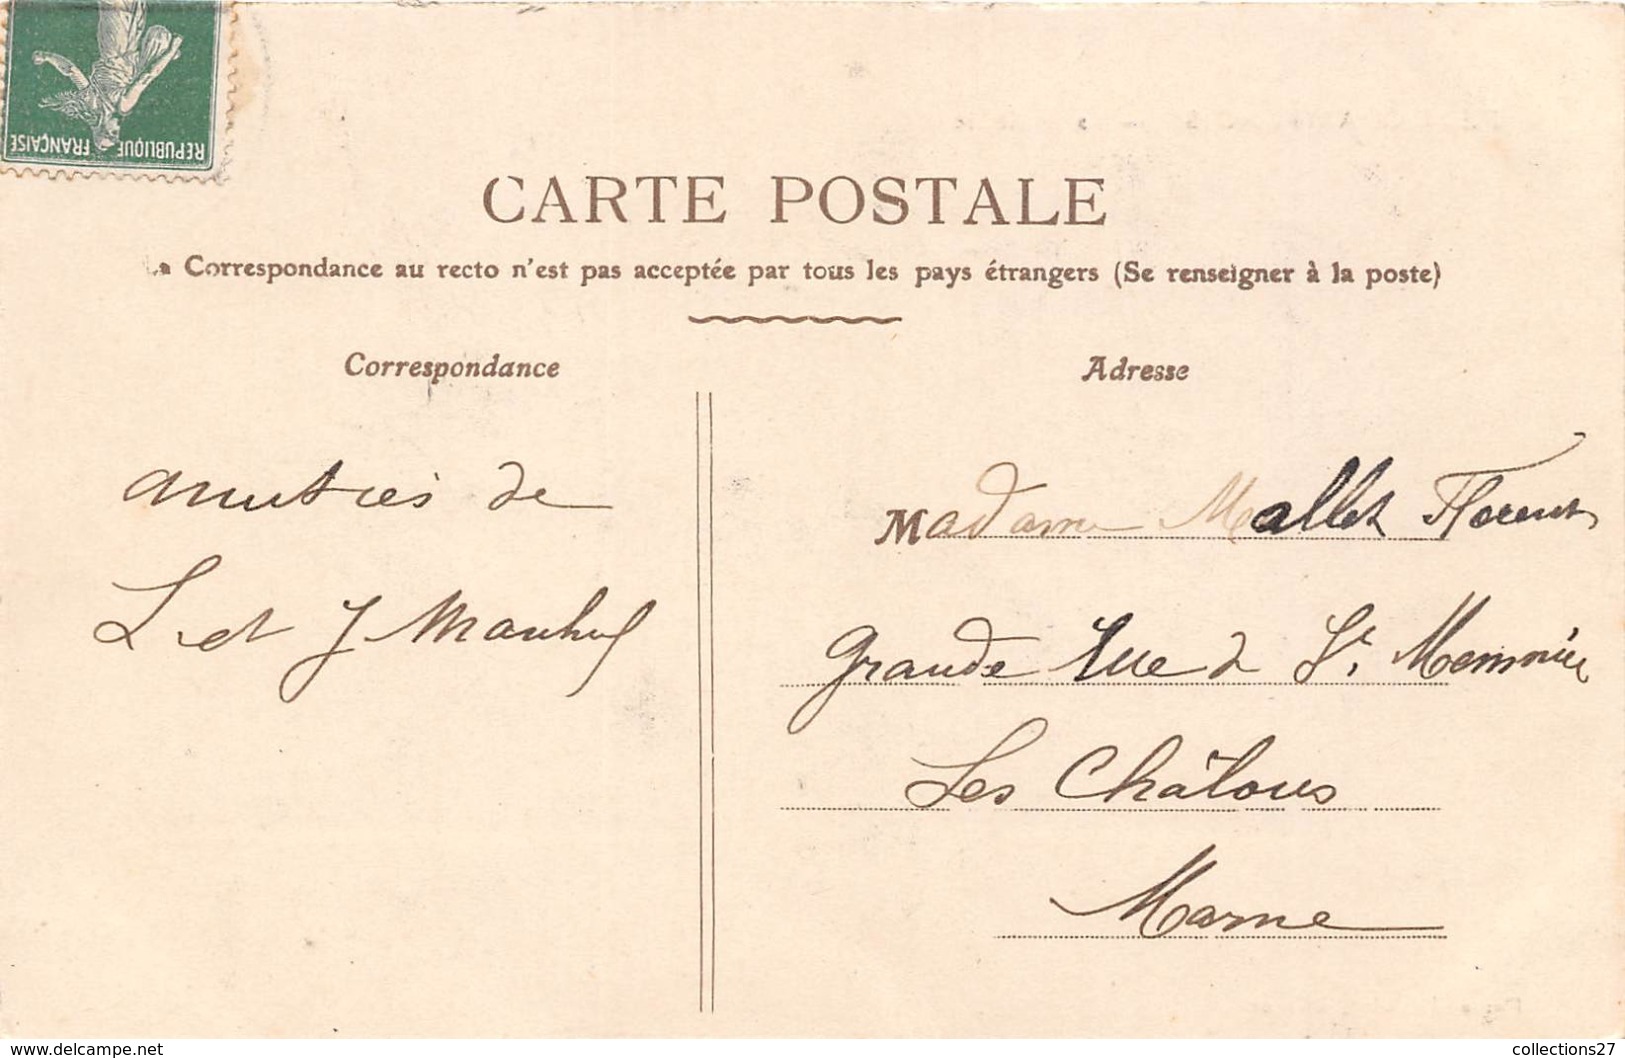 REPUBLIQUE FRANÇAISE
CARTE POSTALE
La Correspondance au recto n'est pas acceptée par tous les pays étrangers (Se renseigner à la poste)
Correspondance
amitiés de
L et J
Adresse
Madame Mallet Florent
Grande Rue de St. Memmie
Les Châlons
Marne
www.delcampe.net
collections27